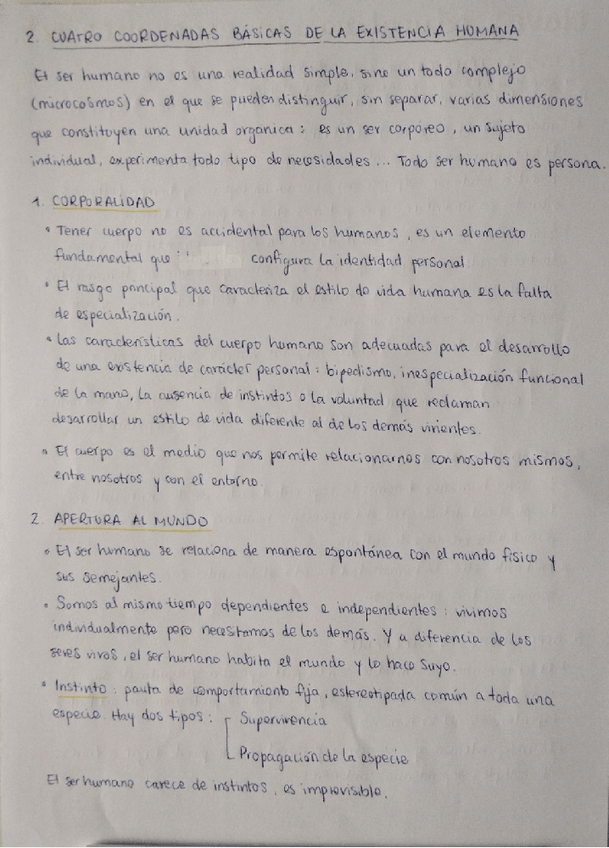 2. CUATRO COORDENADAS BÁSICAS DE LA EXISTENCIA HUMANA
El ser humano no es una realidad simple, sino un todo complejo
(microcosmos) en el que se pueden distinguir, sin separar, varias dimensiones
que constituyen una unidad organica: es un ser corporeo, un sujeto
individual, experimenta todo tipo de necesidades... Todo ser humano es persona.
1. CORPORALIDAD
• Tener cuerpo no es accidental para los humanos, es un elemento
fundamental que configura la identidad personal
• El rasgo principal que caracteriza el estilo de vida humana es la falta
de especialización.
• Las características del cuerpo humano son adecuadas para el desarrollo
de una existencia de carácter personal: bipedismo, inespecialización funcional
de la mano, la ausencia de instintos o la voluntad que reclaman
desarrollar un estilo de vida diferente al de los demás vivientes.
• El cuerpo es el medio que nos permite relacionarnos con nosotros mismos,
entre nosotros y con el entorno.
2. APERTURA AL MUNDO
• El ser humano se relaciona de manera espontánea con el mundo físico y
sus semejantes.
• Somos al mismo tiempo dependientes e independientes: vivimos
individualmente pero necesitamos de los demás. Y a diferencia de los
seres vivos, el ser humano habita el mundo y lo hace suyo.
• Instinto: pauta de comportamiento fija, estereotipada común a toda una
especie. Hay dos tipos: Supervivencia
Propagación de la especie
El ser humano carece de instintos, es imprevisible.